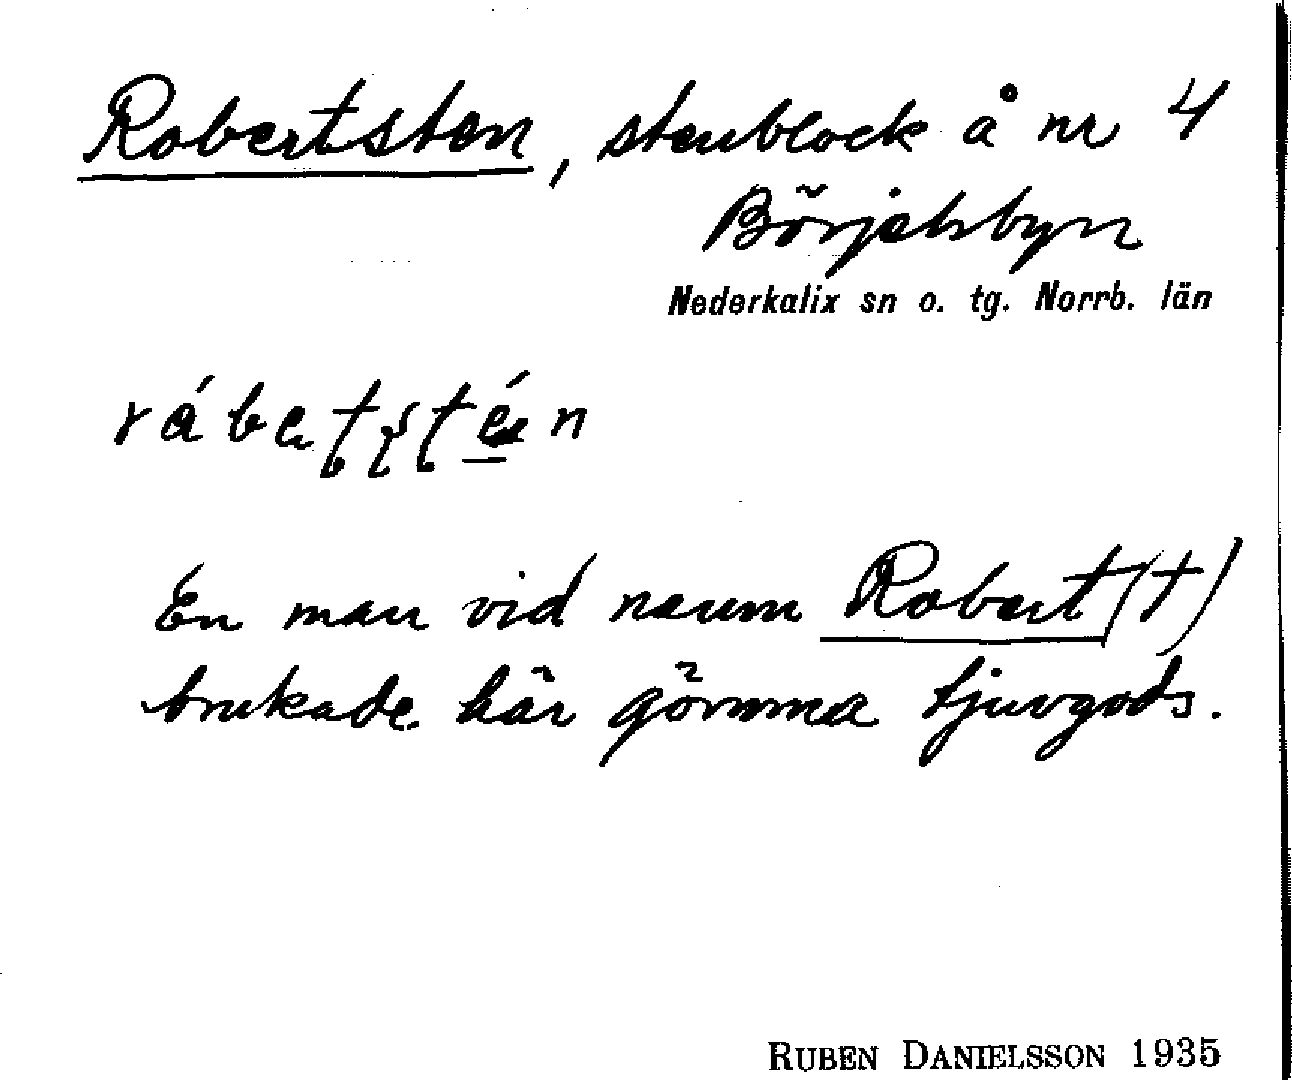 Robertsten, stenblock å nr 4
Börjelsbyn
Nederkalix sn o. tg. Norrb. län
En man vid namn Robert(t)
brukade här gömma tjuvgods.
RUBEN DANIELSSON 1935